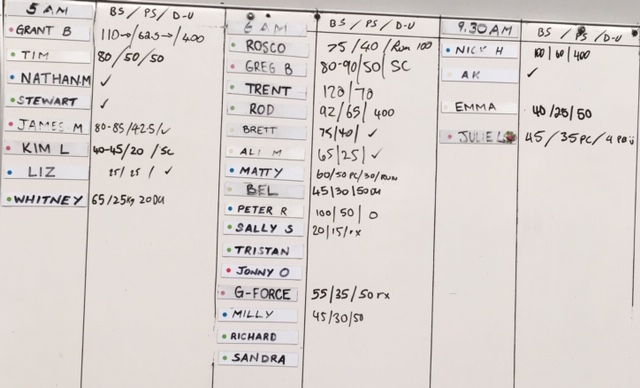 5 AM BS / PS / D-U
GRANT B 110→/62.5→/400
TIM 80/50/50
NATHAN.M ✓
STEWART ✓
JAMES M 80-85/42.5/✓
KIM L 40-45/20/SC
LIZ 25/25/✓
WHITNEY 65/25kg 20DU
6 AM BS / PS / D-U
ROSCO 75/40/Run 100
GREG B 80-90/50/SC
TRENT 120/70
ROD 92/65/400
BRETT 75/40/✓
ALI M 65/25/✓
MATTY 60/50PC/30/RUN
BEL 45/30/50DU
PETER R 100/50/0
SALLY S 20/15/rx
TRISTAN
JONNY O
G-FORCE 55/35/50rx
MILLY 45/30/50
RICHARD
SANDRA
9.30AM BS / PS / D-U
NICK H 100/60/400
AK ✓
EMMA 40/25/50
JULIE 45/35PC/